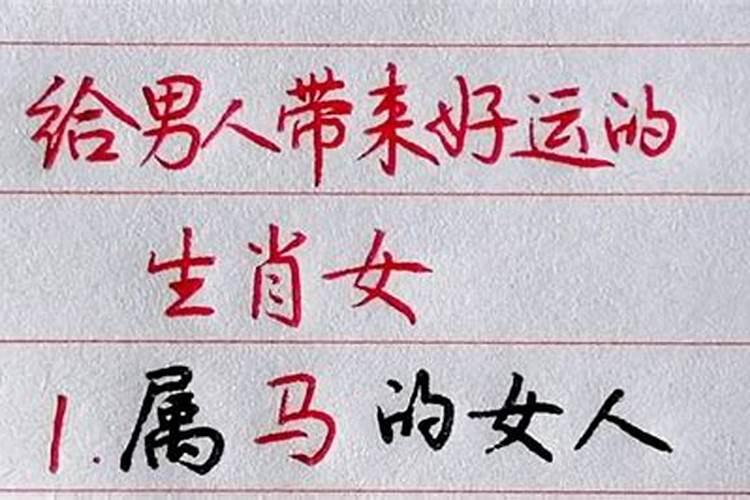 给男人带来好运的
生肖女
1.属马的女人